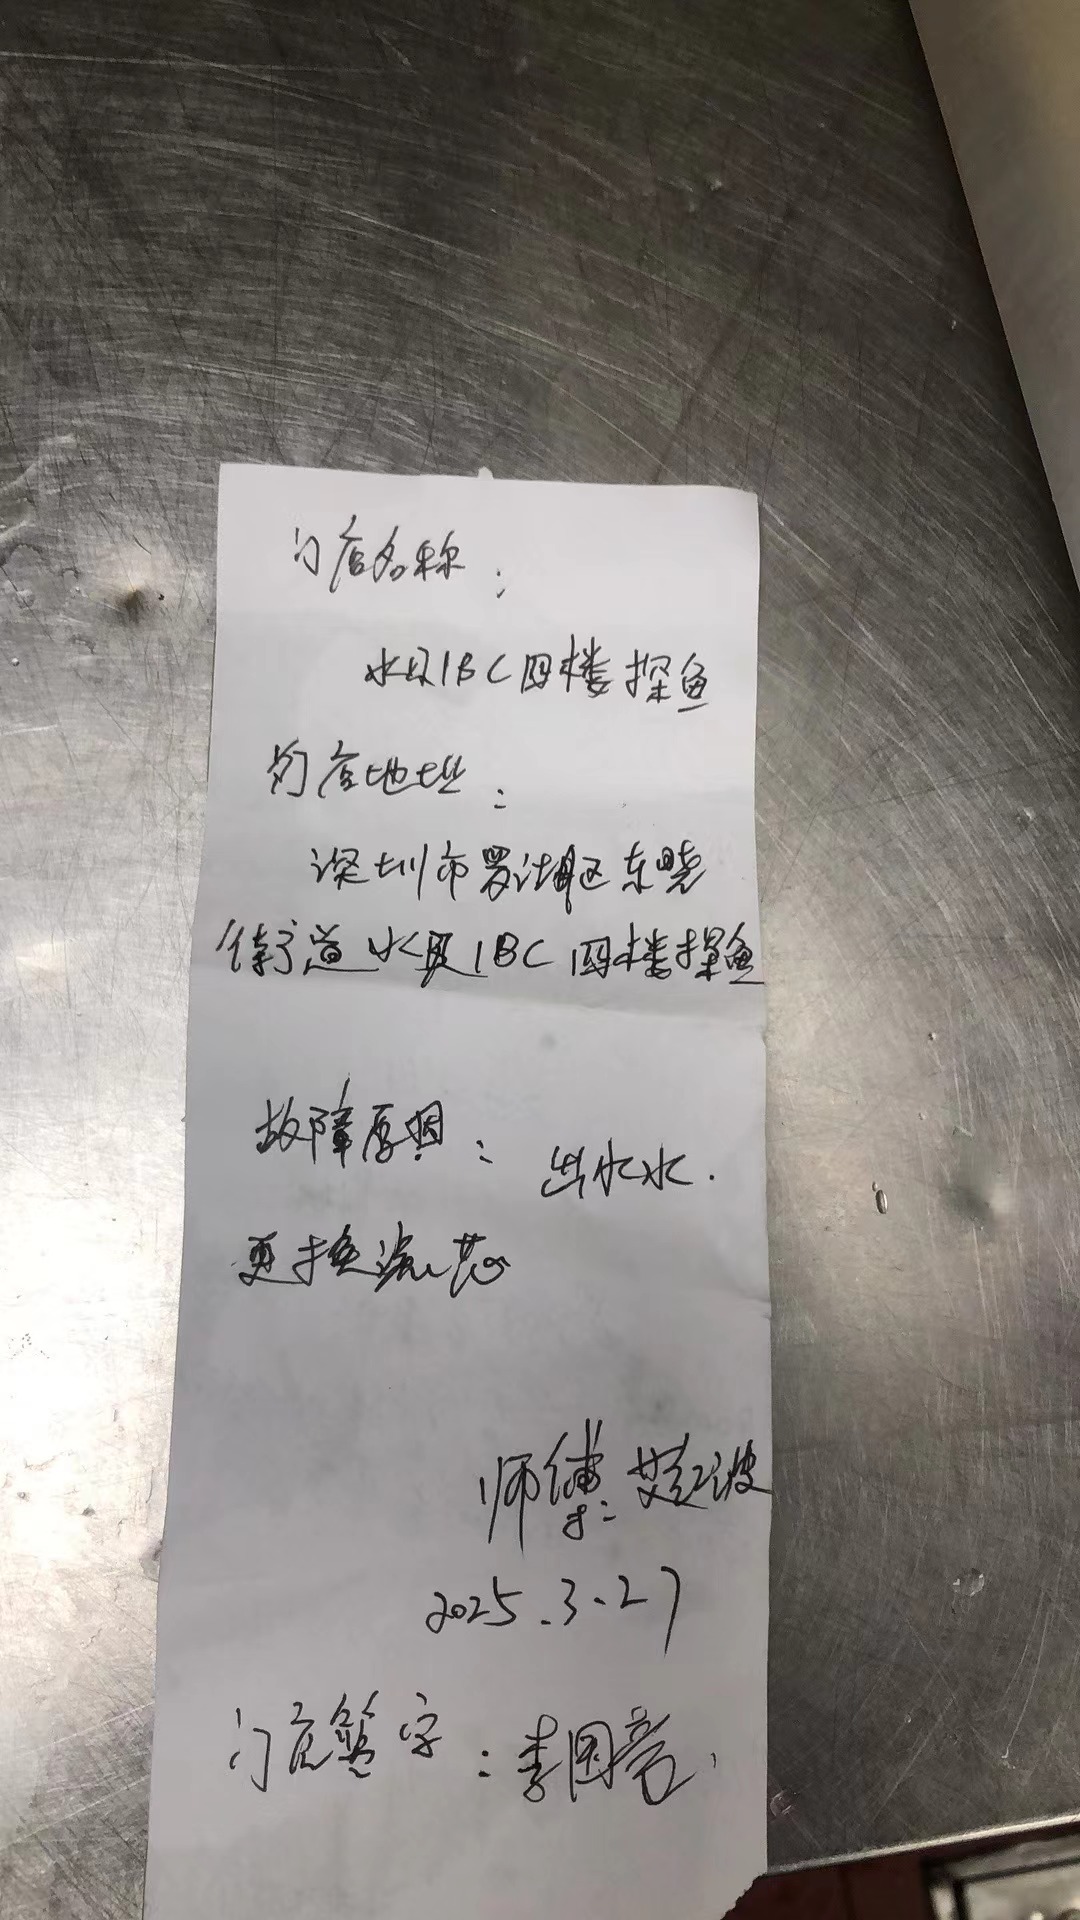 门店名称：
水贝IBC四楼探鱼
门店地址：
深圳市罗湖区东晓
街道水贝IBC四楼探鱼
故障原因： 出水水.
更换滤芯
师傅：艾红波
2025.3.27
门店签字：李国亮